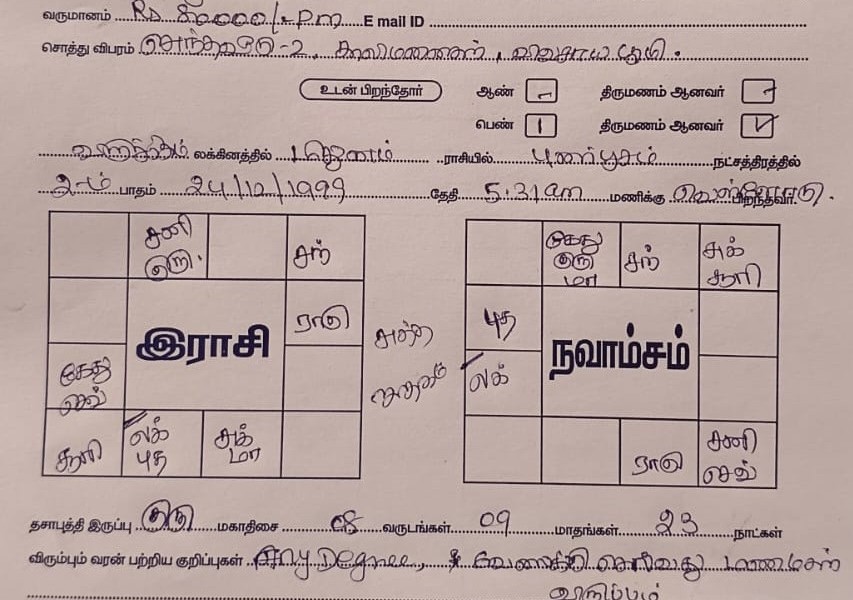 வருமானம் Rs 80000/-pm E mail ID
சொத்து விபரம் சொந்தவீடு-2, காலிமனைகள், விவசாய பூமி.
உடன் பிறந்தோர் ஆண் - திருமணம் ஆனவர் -
பெண் 1 திருமணம் ஆனவர் ✓
லக்கினத்தில் மிதுனம் ராசியில் புனர்பூசம் நட்சத்திரத்தில்
2-ம் பாதம் 24/12/1999 தேதி 5:31am மணிக்கு பிறந்தவர்.
சனி குரு. சந்
ராகு
இராசி
கேது செவ்
சூரி லக் புத சுக் மா
கேது குரு மா சந் சுக் சூரி
புத
நவாம்சம்
லக்
ராகு சனி செவ்
தசாபுத்தி இருப்பு குரு மகாதிசை 08 வருடங்கள் 09 மாதங்கள் 23 நாட்கள்
விரும்பும் வரன் பற்றிய குறிப்புகள் Any Degree, வேலைக்கு செல்வது மணமகன்
விருப்பம்